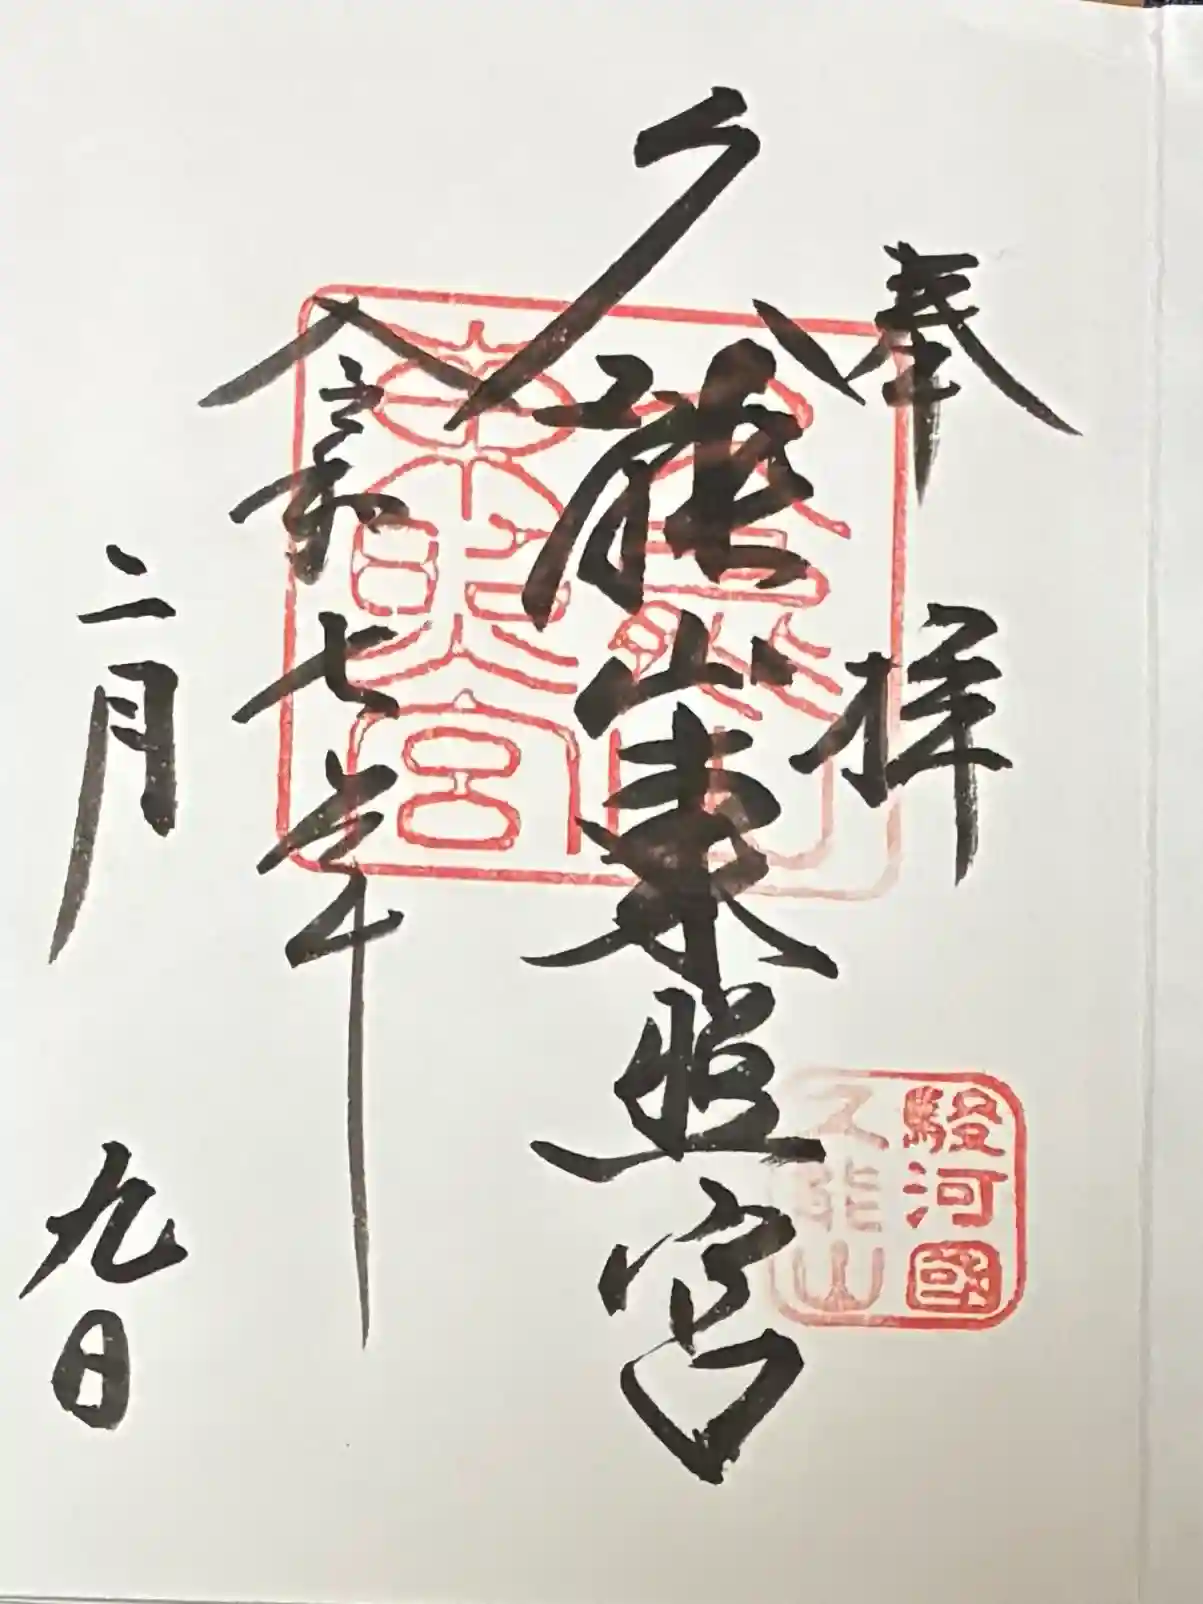 奉拝
久能山東照宮
令和七年
二月九日
久能山
東照宮
駿河國
久能山